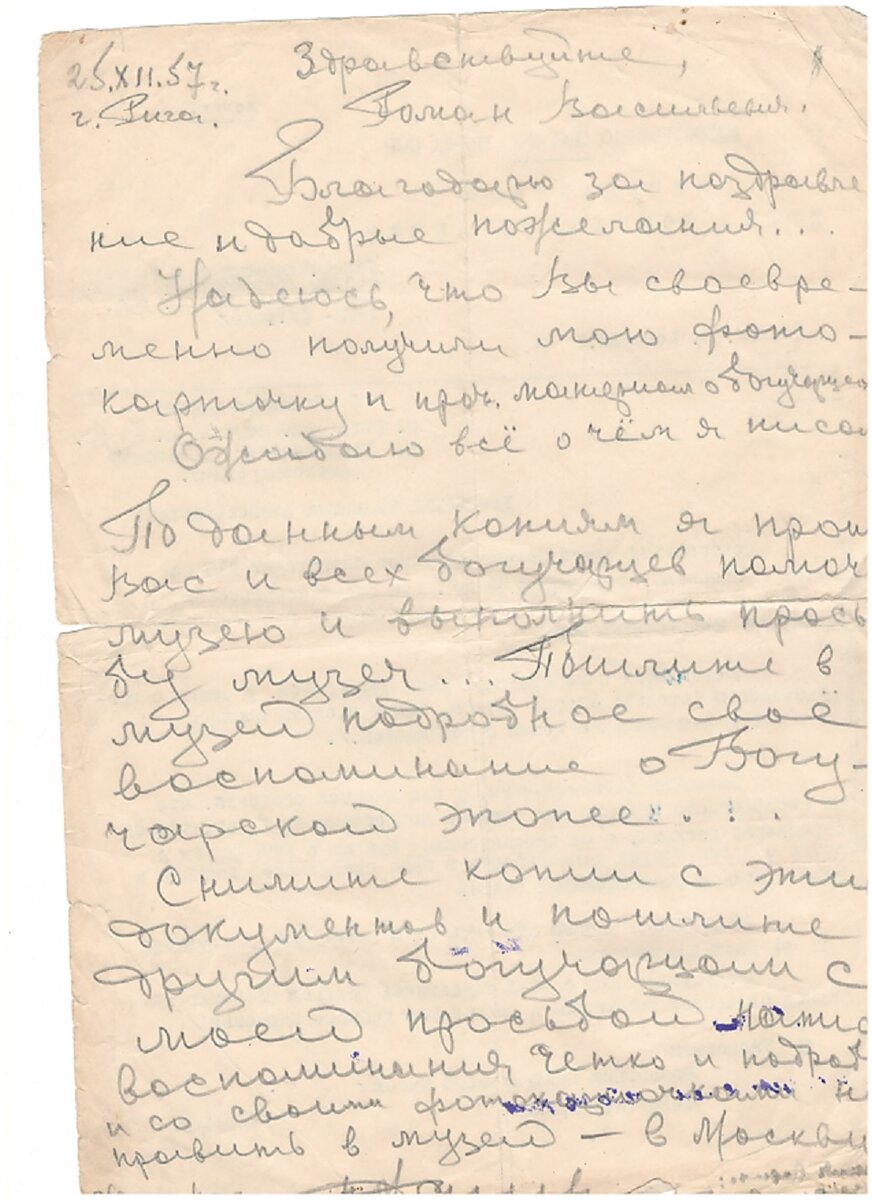 25.XII.57г.
г. Рига.
Здравствуйте,
Роман Васильевич.
Благодарю за поздравле
ние и добрые пожелания...
Надеюсь, что Вы своевре-
менно получили мою фото-
карточку и проч. материал о богучарцах
Ожидаю всё о чём я писал
По данным копиям я прошу
Вас и всех богучарцев помочь
музею и выполнить прось
бу музея... Пошлите в
музей подробное своё
воспоминание о Богу-
чарской эпопее...
Снимите копии с эти
документов и пошлите
другим богучарцам с
моей просьбой напис
воспоминания, четко и подроб
и со своими фотокарточками на
править в музей — в Москву